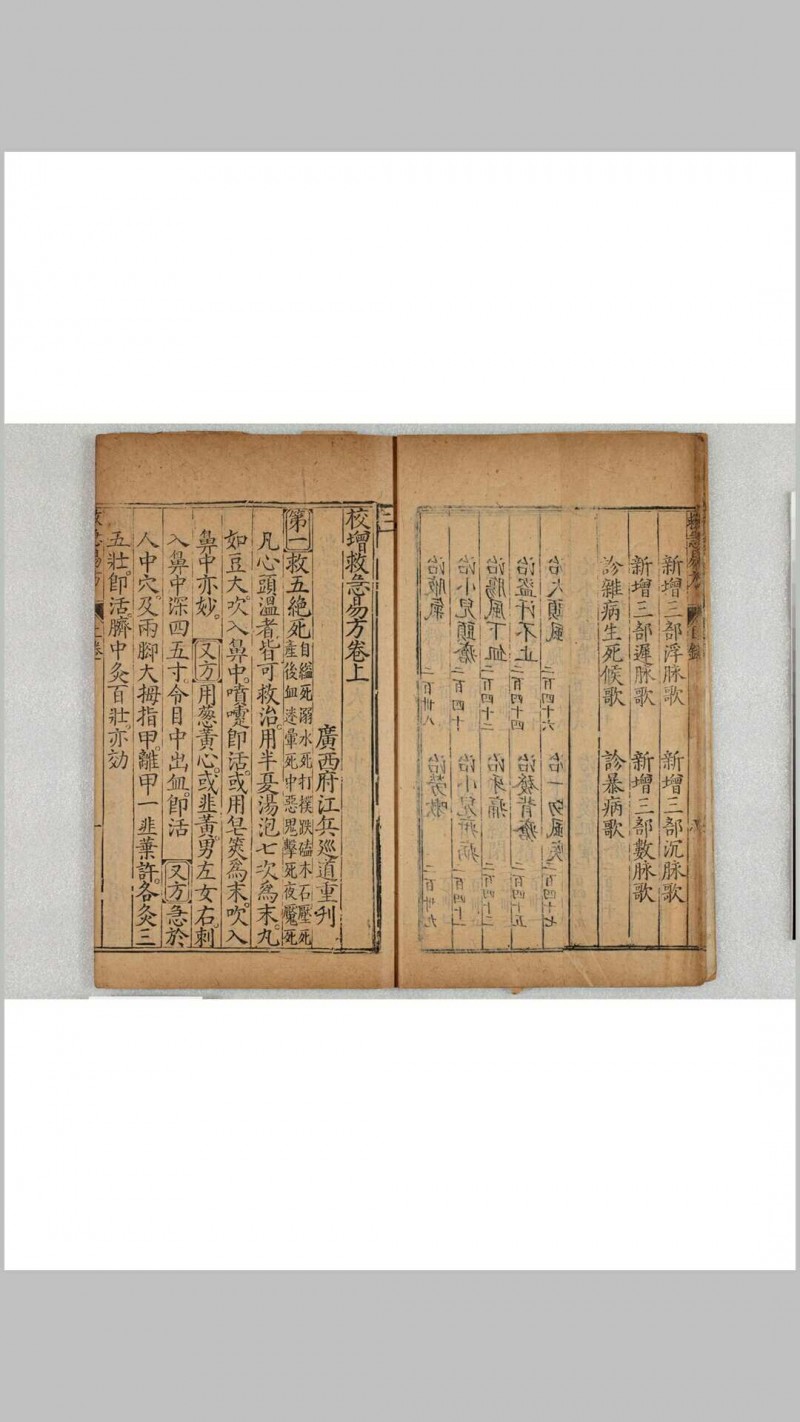 新增三部浮脉歌 新增三部沉脉歌
新增三部遲脉歌 新增三部數脉歌
診雜病生死候歌 診暴病歌
治大頭風 二百四十六 治一切風疾 二百四十七
治盜汗不止 二百四十四 治發背瘡 二百四十五
治腸風下血 二百四十二 治牙痛 二百四十三
治小兒頭瘡 二百四十 治小兒疳病 二百四十一
治脚氣 二百卅八 治勞嗽 二百卅九
校增救急易方卷上
廣西府江兵廵道重刋
第一救五絶死自縊死溺水死打撲跌磕木石壓死
産後血迷暈死中惡鬼擊死夜魘死
凡心頭溫者皆可救治用半夏湯泡七次爲末丸
如豆大吹入鼻中噴嚏即活或用皂筴爲末吹入
鼻中亦妙又方用葱黃心或韭黃男左女右刺
入鼻中深四五寸令目中出血即活又方急於
人中穴及兩脚大拇指甲離甲一韭葉許各灸三
五壯即活臍中灸百壯亦効